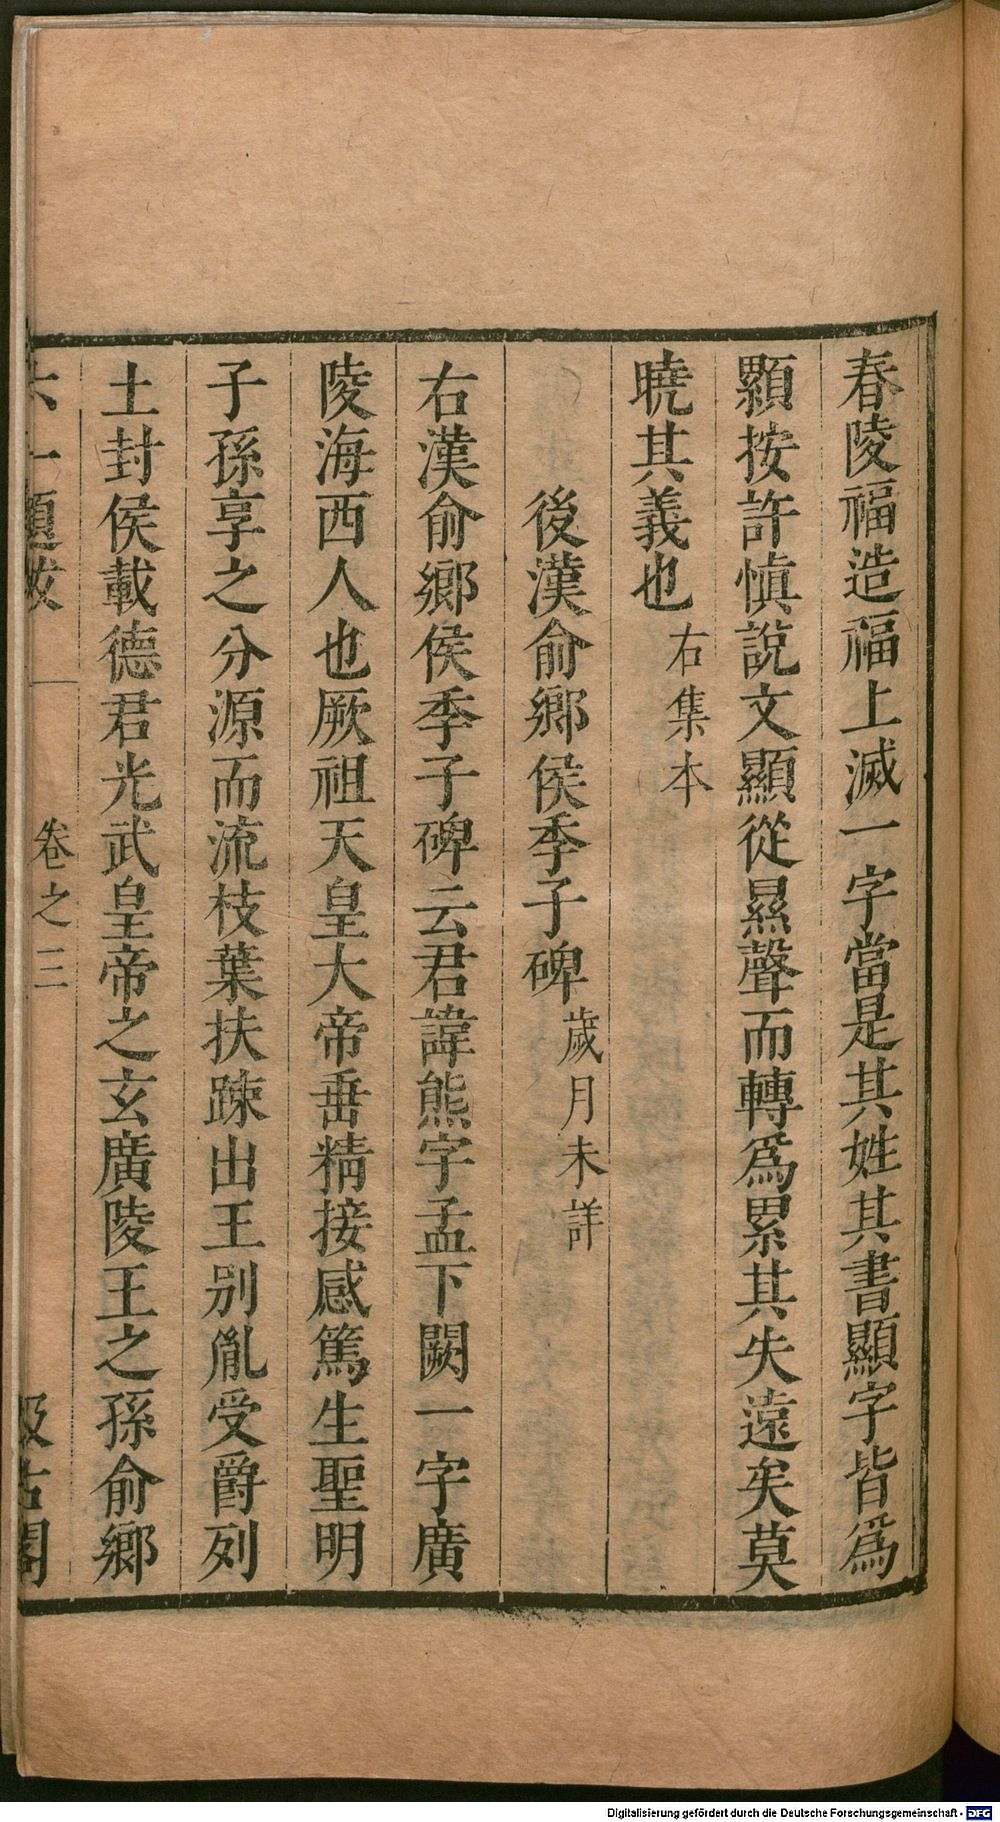 春陵福造福上滅一字當是其姓其書顯字皆為
顥按許慎說文顯從㬎聲而轉為累其失遠矣莫
曉其義也右集本
後漢俞鄉侯季子碑歲月未詳
右漢俞鄉侯季子碑云君諱熊字孟下闕一字廣
陵海西人也厥祖天皇大帝垂精接感篤生聖明
子孫享之分源而流枝葉扶踈出王别胤受爵列
土封侯載德君光武皇帝之玄廣陵王之孫俞鄉
六一題跋 卷之三 汲古閣
Digitalisierung gefördert durch die Deutsche Forschungsgemeinschaft - DFG